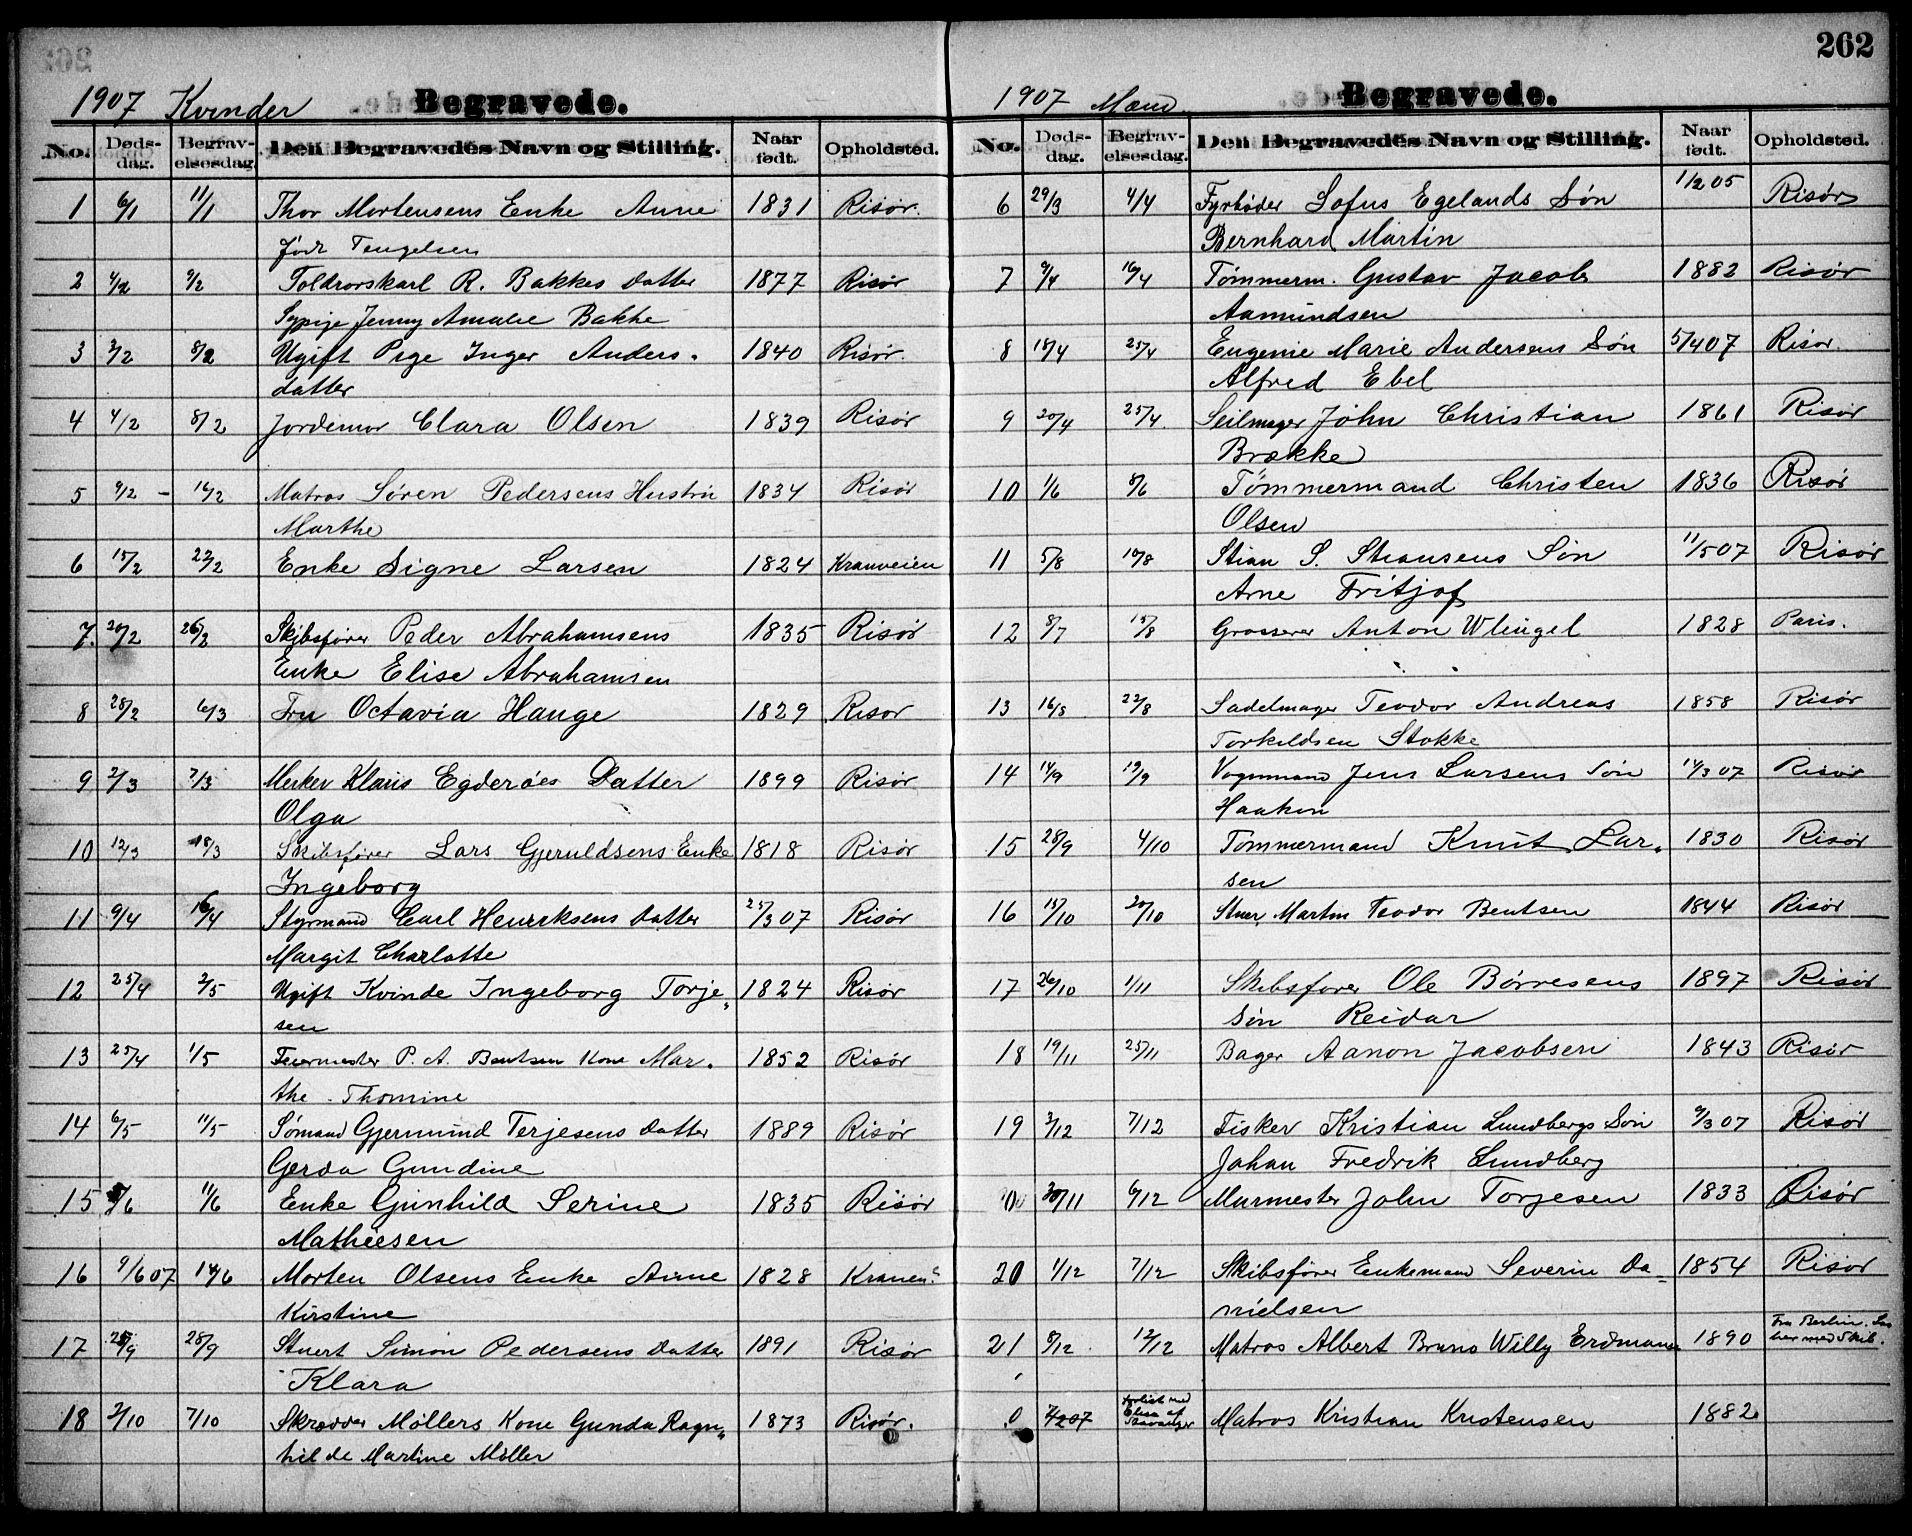 262
1907 Kvinder Begravede.
No. Døds-dag. Begrav-elsesdag. Den Begravedes Navn og Stilling. Naar født. Opholdsted.
1 6/1 11/1 Thor Mortensens Enke Anne 1831 Risør.
født Tengelsen
2 4/2 9/2 Toldrorskarl R. Bakkes Datter 1877 Risør
Sypige Jenny Amalie Bakke
3 3/2 8/2 Ugift Pige Inger Anders- 1840 Risør.
datter
4 4/2 8/2 Jordemor Clara Olsen 1839 Risør
5 9/2 - 16/2 Matros Søren Pedersens Hustru 1834 Risør
Marthe
6 15/2 22/2 Enke Signe Larsen 1824 Kranveien
7. 20/2 26/2 Skibsfører Peder Abrahamsens 1835 Risør
Enke Elise Abrahamsen
8 28/2 6/3 Fru Octavia Hauge 1829 Risør
9 2/3 7/3 Klaus Egderøes Datter 1899 Risør
Olga
10 12/3 18/3 Skibsfører Lars Gjeruldsens Enke 1818 Risør
Ingeborg
11 9/4 16/4 Styrmand Carl Henriksens Datter 25/3 07 Risør
Margit Charlotte
12 25/4 2/5 Ugift Kvinde Ingeborg Torje- 1824 Risør
sen
13 25/4 1/5 Feiermester P. A. Bentsen Kone Mar- 1852 Risør
the Thomine
14 6/5 11/5 Sømand Gjermund Terjesens Datter 1889 Risør
Gerda Gundine
15 /6 11/6 Enke Gunhild Serine 1835 Risør
Mathiesen
16 9/6 07 14/6 Morten Olsens Enke Anne 1828 Kranen
Kirstine
17 /9 28/9 Stuert Simon Pedersens Datter 1891 Risør
Klara
18 2/10 7/10 Skrædder Møllers Kone Gunda Ragn- 1873 Risør.
hilde Martine Møller
1907 Mænd Begravede.
No. Døds-dag. Begrav-elsesdag. Den Begravedes Navn og Stilling. Naar født. Opholdsted.
6 29/3 4/4 Fyrbøder Sofus Egelands Søn 1/2 05 Risør
Bernhard Martin
7 9/4 16/4 Tømmerm. Gustav Jacob 1882 Risør
Aamundsen
8 18/4 25/4 Eugenie Marie Andersens Søn 5/4 07 Risør.
Alfred Ebel
9 20/4 25/4. Seilmager John Christian 1861 Risør
Brække
10 1/6 8/6 Tømmermand Christen 1836 Risør
Olsen
11 5/8 10/8 Stian S. Stiansens Søn 11/5 07 Risør
Arne Fritjof
12 8/7 15/8 Grosserer Anton Wlingel 1828 Paris.
13 16/8 22/8 Sadelmager Teodor Andreas 1858 Risør
Torkildsen Stokke
14 14/9 19/9 Vognmand Jens Larsens Søn 14/3 07 Risør
Haakon
15 28/9 4/10 Tømmermand Knut Lar- 1830 Risør
sen
16 15/10 20/10 Stuer, Martin Teodor Bentsen 1844 Risør
17 26/10 1/11 Skibsfører Ole Børresens 1897 Risør
Søn Reidar
18 19/11 25/11 Bager Aanon Jacobsen 1843 Risør
19 2/12 7/12 Fisker Kristian Lundbergs Søn 9/3 07 Risør
Johan Fredrik Lundberg
30/11 6/12 Murmester John Torjesen 1833 Risør
20 1/12 7/12 Skibsfører Enkemand Severin Da- 1854 Risør
nielsen
21 8/12 12/12 Matros Albert Bruno Willy Erdmann 1890 Fra Berlin. med Skib.
0 /2 07 forlist med Elisa af Stavanger Matros Kristian Kristensen 1882